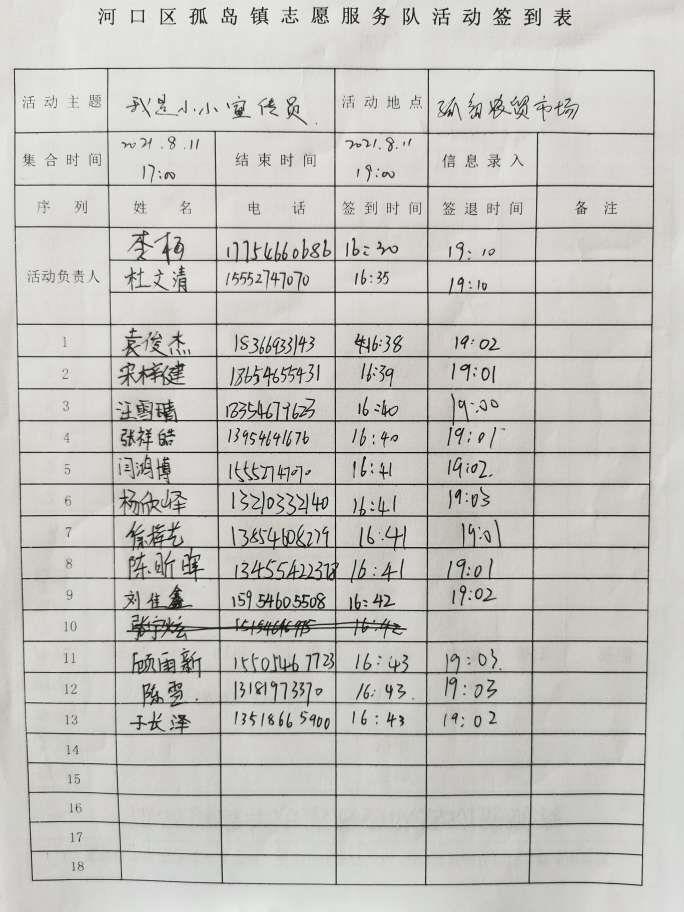 河口区孤岛镇志愿服务队活动签到表
活动主题 我是小小宣传员. 活动地点 孤岛农贸市场
集合时间 2021.8.11 17:00 结束时间 2021.8.11 19:00 信息录入
序 列 姓 名 电 话 签到时间 签退时间 备 注
活动负责人
李杨 17754660686 16:30 19:10
杜文清 15552747070 16:35 19:10
1 袁俊杰 18366933143 16:38 19:02
2 宋梓健 18654655431 16:39 19:01
3 汪雪晴 18354679623 16:40 19:00
4 张祥皓 13954641676 16:40 19:01
5 闫鸿博 15552747070 16:41 19:02.
6 杨欣怿 13210332140 16:41 19:03
7 徐梓艺 13854608279 16:41 19:01
8 陈昕晖 13455422378 16:41 19:01
9 刘佳鑫 15954605508 16:42 19:02
10 16:42
11 顾雨新 15505467723 16:43 19:03.
12 陈雪. 13181973370 16:43. 19:03
13 于长泽 13518665900 16:43 19:02
14
15
16
17
18